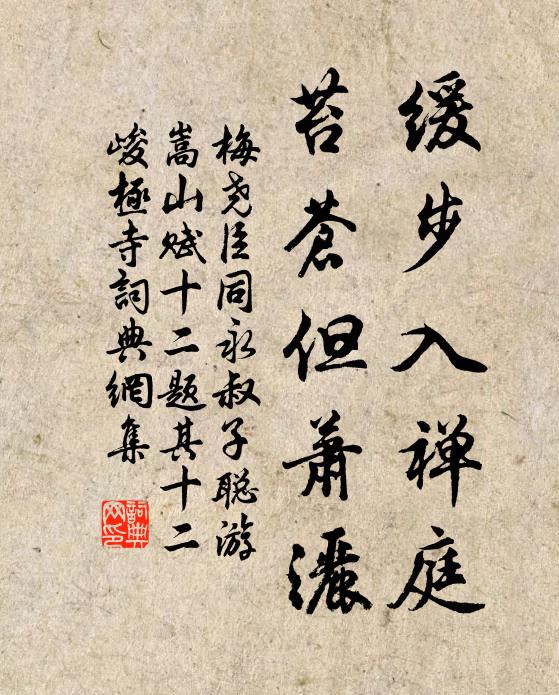 缓步入禅庭
苔苍但萧灑
梅尧臣同永叔子聪游
嵩山赋十二题其十二
峻極寺詞典網集
詞典
网印